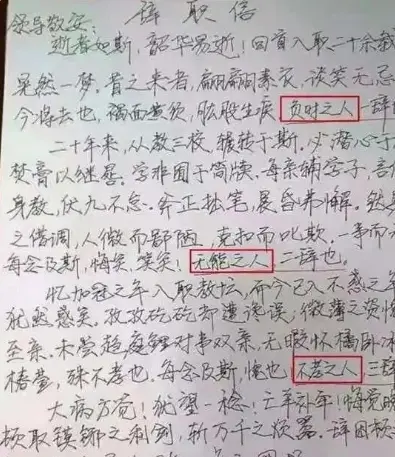 辞职信
领导敬安:
逝者如斯，韶华易逝！回首入职二十余载
呆然一梦。昔之来者，翩翩素衣，谈笑无忌
今将去也，褐面黄须，肱股生痰 负时之人 一辞
二十年来，从教三校，辗转于斯。必潜心于
焚膏以继晷。学非囿于简牍，每亲辅学子，言
身教，伏九不怠。斧正拙笔，晨昏弗懈。然
之借调，人微而鄙陋，克扣而叱欺。一事而
每念及斯，悔矣，哭矣！无能之人 二辞也。
忆加冠之年入职教坛，而今已入不惑之年
犹然惑矣。孜孜矻矻却遭谗误，微薄之资愧
至亲。未尝趋庭鲤对事双亲，无暇怀橘卧冰
椿萱，殊不孝也。每念及斯，愧也 不孝之人 三辞
大病方觉！犹望一稔！亡羊补牢！悔觉晚
须取镆铘之利剑，斩万千之烦嚣。辞囹